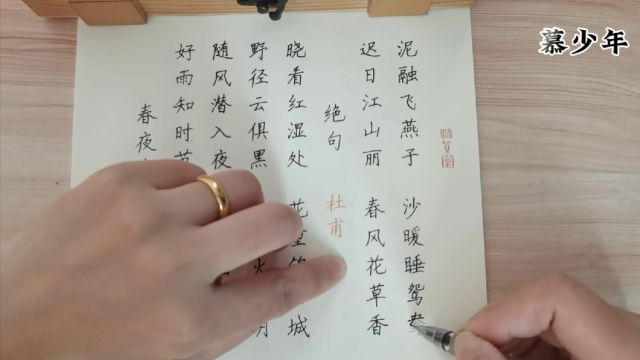 慕少年
春夜
好雨知时
随风潜入夜
野径云俱黑 火
晓看红湿处 花重 城
绝句 杜甫
迟日江山丽 春风花草香
泥融飞燕子 沙暖睡鸳